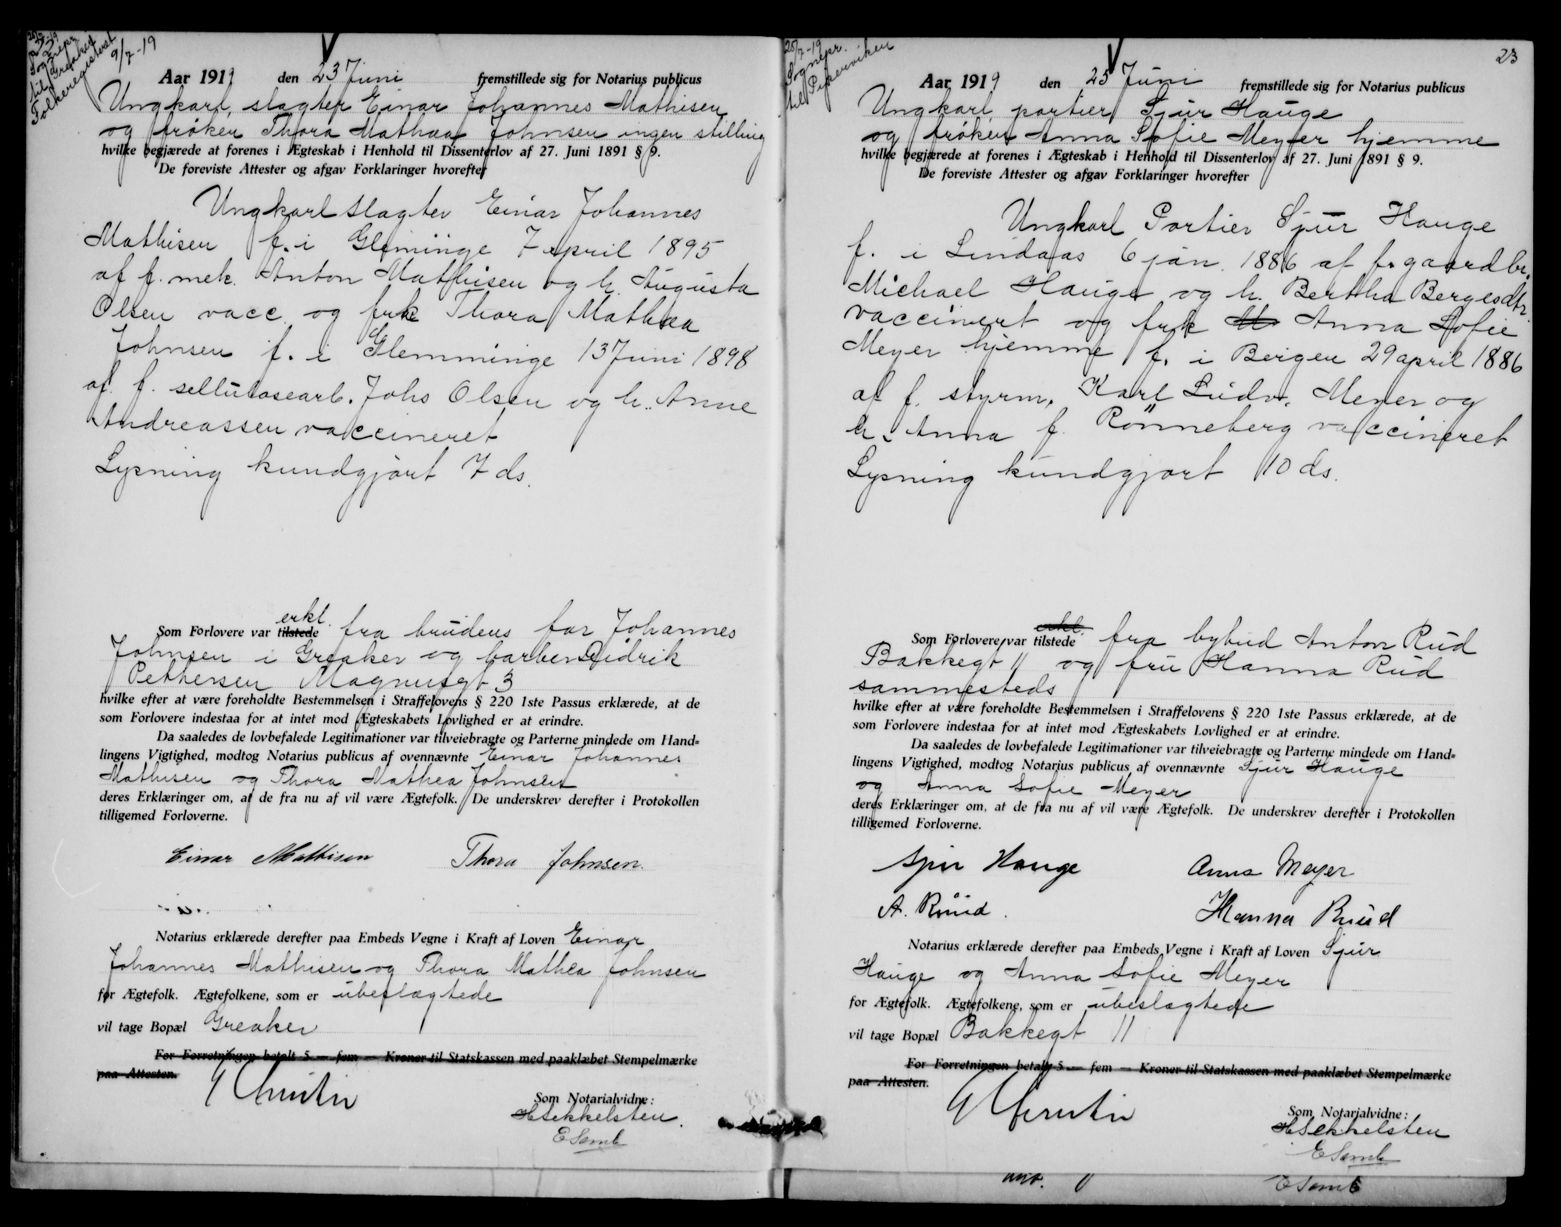 20/2-19
Sognepr.
til Greaker
Folkeregisteret
9/7-19
Aar 1919 den 23 Juni fremstillede sig for Notarius publicus
Ungkarl, slagter Einar Johannes Mathisen
og frøken Thora Mathea Johnsen ingen stilling
hvilke begjærede at forenes i Ægteskab i Henhold til Dissenterlov af 27. Juni 1891 § 9.
De foreviste Attester og afgav Forklaringer hvorefter
Ungkarl slagter Einar Johannes
Mathisen f. i Glemminge 7 april 1895
af f. mek. Anton Mathisen og h. Augusta
Olsen vacc. og frk Thora Mathea
Johnsen f. i Glemminge 13 Juni 1898
af f. sellulosearb. Johs Olsen og h. Anne
Andreassen vaccineret
Lysning kundgjort 7 ds.
erkl.
Som Forlovere var tilstede fra brudens far Johannes
Johnsen i Greaker og barber Didrik
Pettersen Magnusgt 3
hvilke efter at være foreholdte Bestemmelsen i Straffelovens § 220 1ste Passus erklærede, at de
som Forlovere indestaa for at intet mod Ægteskabets Lovlighed er at erindre.
Da saaledes de lovbefalede Legitimationer var tilveiebragte og Parterne mindede om Hand-
lingens Vigtighed, modtog Notarius publicus af ovennævnte Einar Johannes
Mathisen og Thora Mathea Johnsen
deres Erklæringer om, at de fra nu af vil være Ægtefolk. De underskrev derefter i Protokollen
tilligemed Forloverne.
Einar Mathisen Thora Johnsen.
Notarius erklærede derefter paa Embeds Vegne i Kraft af Loven Einar
Johannes Mathisen og Thora Mathea Johnsen
for Ægtefolk. Ægtefolkene, som er ubeslægtede
vil tage Bopæl Greaker
For Forretningen betalt 5 — fem — Kroner til Statskassen med paaklæbet Stempelmærke
paa Attesten.
Som Notarialvidne:
H Sekkelsten.
E Samb
23
Sognepr.
til Pipervviken
Aar 1919 den 25 Juni fremstillede sig for Notarius publicus
Ungkarl, portier Sjur Hauge
og frøken Anna Sofie Meyer hjemme
hvilke begjærede at forenes i Ægteskab i Henhold til Dissenterlov af 27. Juni 1891 § 9.
De foreviste Attester og afgav Forklaringer hvorefter
Ungkarl Portier Sjur Hauge
f. i Lindaas 6 jan. 1886 af f. gaardbr.
Michael Hauge og h. Bertha Bergesdtr.
vaccinert og frk Anna Sofie
Meyer hjemme f. i Bergen 29 april 1886
af f. styrm. Karl Ludv. Meyer og
h. Anna f. Rönneberg vaccineret
Lysning kundgjort 10 ds.
erkl.
Som Forlovere var tilstede fra bybud Anton Rud
Bakkegt 11 og fru Hanna Rud
sammesteds
hvilke efter at være foreholdte Bestemmelsen i Straffelovens § 220 1ste Passus erklærede, at de
som Forlovere indestaa for at intet mod Ægteskabets Lovlighed er at erindre.
Da saaledes de lovbefalede Legitimationer var tilveiebragte og Parterne mindede om Hand-
lingens Vigtighed, modtog Notarius publicus af ovennævnte Sjur Hauge
og Anna Sofie Meyer
deres Erklæringer om, at de fra nu af vil være Ægtefolk. De underskrev derefter i Protokollen
tilligemed Forloverne.
Sjur Hauge Anna Meyer
A. Ruud. Hanna Ruud
Notarius erklærede derefter paa Embeds Vegne i Kraft af Loven Sjur
Hauge og Anna Sofie Meyer
for Ægtefolk. Ægtefolkene, som er ubeslægtede
vil tage Bopæl Bakkegt 11
For Forretningen betalt 5 — fem — Kroner til Statskassen med paaklæbet Stempelmærke
paa Attesten.
Som Notarialvidne:
H Sekkelsten
E Samb
E Samb